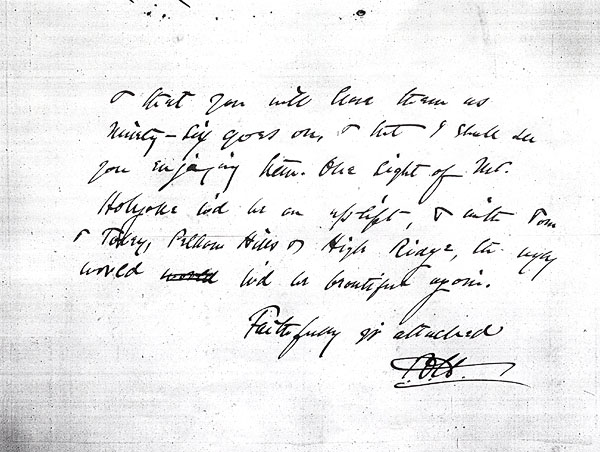 & that you will have them as
Ninety-Six goes on, & that I shall see
you enjoying them. One sight of Mt.
Holyoke w'd be an uplift, & with Tom
& Toby, Pelham Hills & High Ridge, the ugly
world world w'd be beautiful again.
Faithfully yr attached